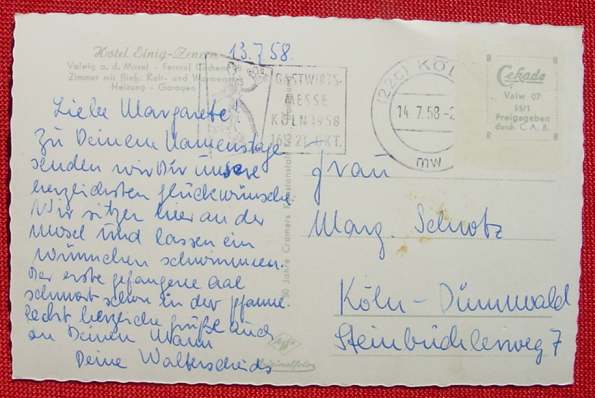 Hotel Einig-Zenzen
Valwig a. d. Mosel - Fernruf Cochem
Zimmer mit fließ. Kalt- und Warmwasser
Heizung - Garagen
13.7.58.
Liebe Margarete!
Zu Deinem Namenstage
senden wir Dir unsere
herzlichsten Glückwünsche.
Wir sitzen hier an der
Mosel und lassen ein
Würmchen schwimmen.
Der erste gefangene Aal
schmort schon in der Pfanne.
Recht herzliche Grüße auch
an Deinen Mann
Deine Walterscheids
GASTWIRTS-
MESSE
KÖLN 1958
(22c) KÖLN
14.7.58
mw
Cekade
Valw 07
55/1
Freigegeben
durch C.A.B.
Frau
Marg. Schotz
Köln-Dünnwald
Steinbüchlerweg 7
30 Jahre Cramers Kunstanstalt
Agfa
Originalfoto